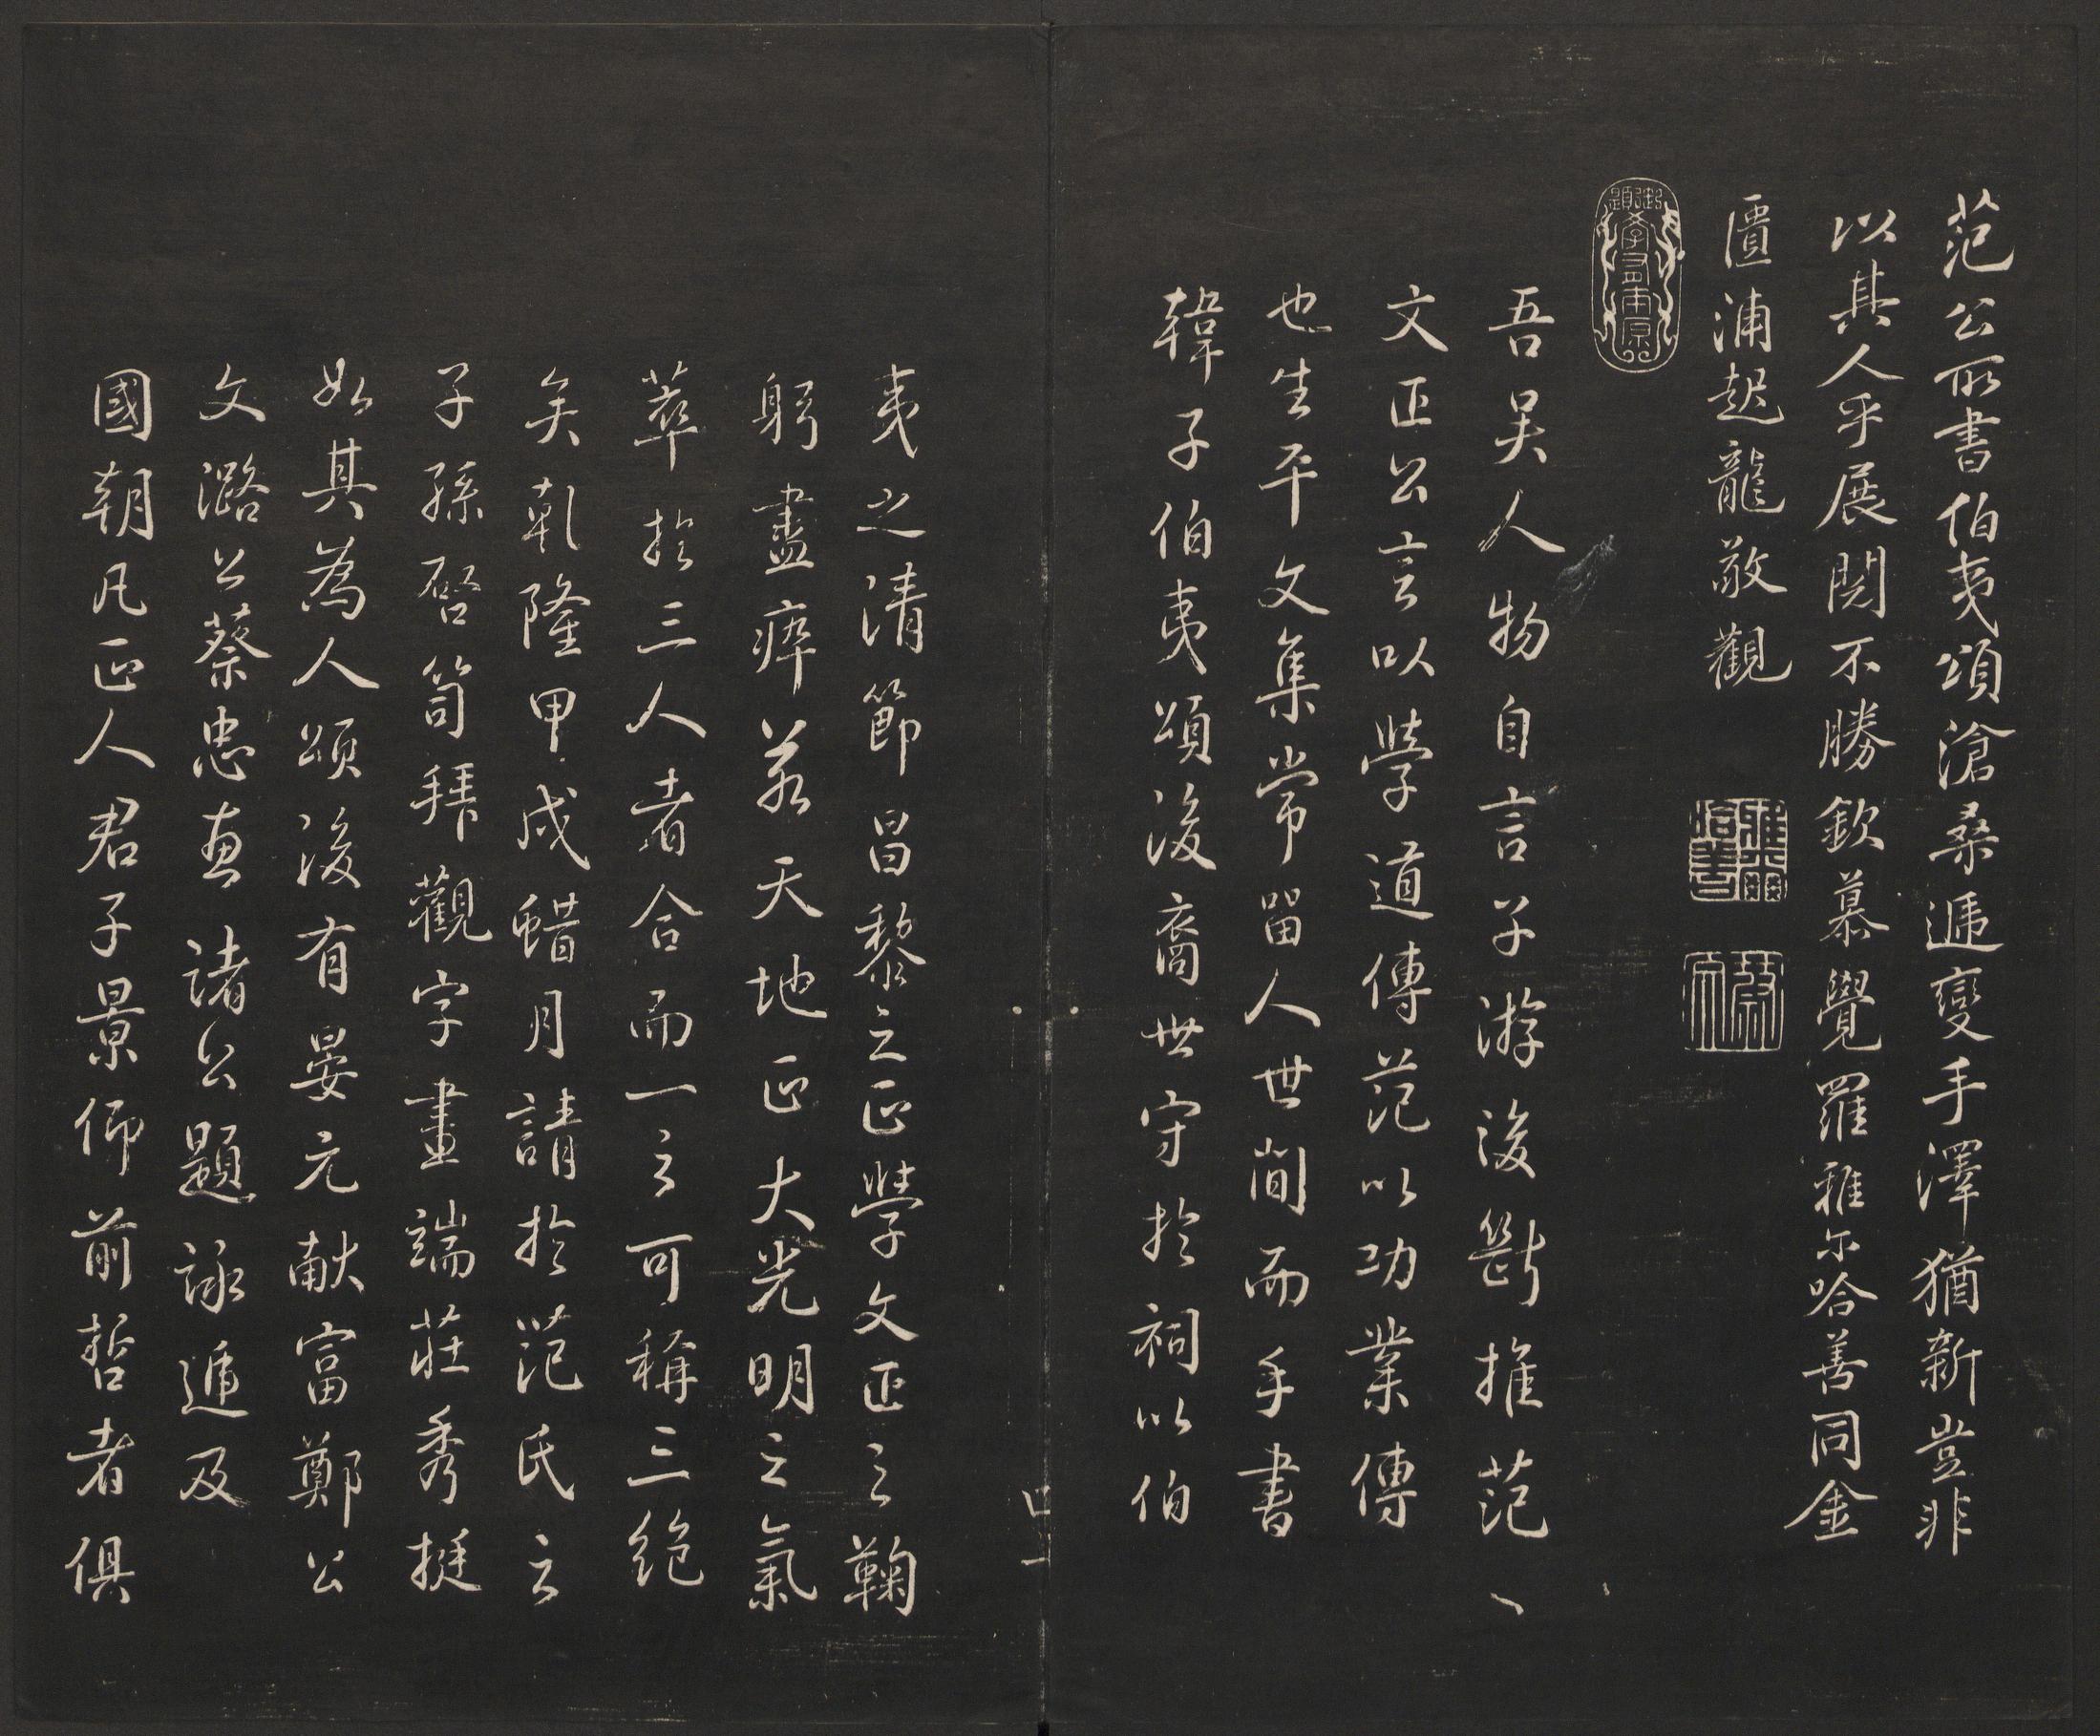 范公所書伯夷頌滄桑遞變手澤猶新豈非
以其人乎展閱不勝欽慕覺羅雅尔哈善同金
匱浦起龍敬觀
吾吴人物自言子游後斷推范〻
文正公言以學道傳范以功業傳
也生平文集常留人世間而手書
韓子伯夷頌後裔世守於祠以伯
夷之清節昌黎之正學文正之鞠
躬盡瘁萃天地正大光明之氣
萃於三人者合而一之可稱三絶
矣乹隆甲戌蜡月請於范氏之
子孫啓笥拜觀字畫端莊秀挺
如其為人頌後有晏元献富鄭公
文潞公蔡忠惠諸公題詠遞及
國朝凡正人君子景仰前哲者俱
四一